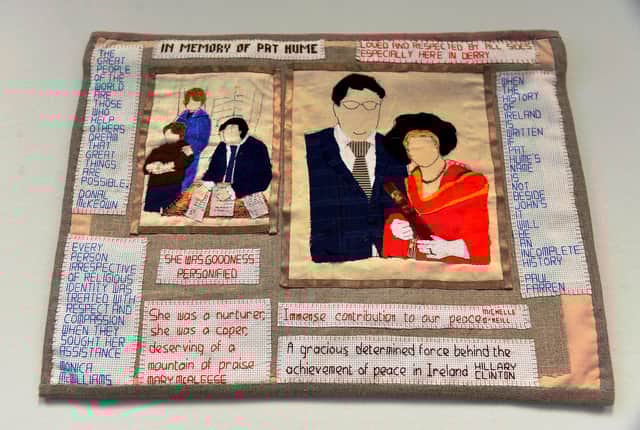 IN MEMORY OF PAT HUME
LOVED AND RESPECTED BY ALL SIDES
ESPECIALLY HERE IN DERRY
THE
GREAT
PEOPLE
OF THE
WORLD
ARE
THOSE
WHO
HELP
OTHERS
DREAM
THAT
GREAT
THINGS
ARE
POSSIBLE.
DONAL
McKEOWN
WHEN
THE
HISTORY
OF
IRELAND
IS
WRITTEN
IF
PAT
HUME'S
NAME
IS
NOT
BESIDE
JOHN'S
IT
WILL
BE
AN
INCOMPLETE
HISTORY
PAUL
FARREN
SHE WAS GOODNESS
PERSONIFIED
EVERY
PERSON
IRRESPECTIVE
OF RELIGIOUS
IDENTITY WAS
TREATED WITH
RESPECT AND
COMPASSION
WHEN THEY
SOUGHT HER
ASSISTANCE
MONICA
McWILLIAMS
She was a nurturer,
she was a carer,
deserving of a
mountain of praise
MARY McALEESE
Immense contribution to our peace MICHELLE
O'NEILL
A gracious determined force behind the
achievement of peace in Ireland HILLARY
CLINTON